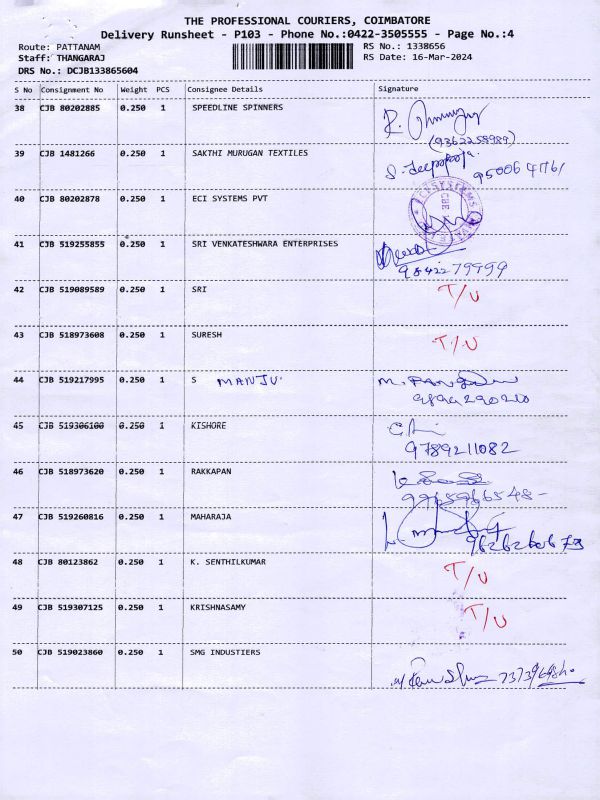 THE PROFESSIONAL COURIERS, COIMBATORE
Delivery Runsheet - P103 - Phone No.:0422-3505555 - Page No.:4
Route: PATTANAM
Staff: THANGARAJ
DRS No.: DCJB133865604
RS No.: 1338656
RS Date: 16-Mar-2024
S No Consignment No Weight PCS Consignee Details Signature
38 CJB 80202885 0.250 1 SPEEDLINE SPINNERS
(9362259989)
39 CJB 1481266 0.250 1 SAKTHI MURUGAN TEXTILES
40 CJB 80202878 0.250 1 ECI SYSTEMS PVT
41 CJB 519255855 0.250 1 SRI VENKATESHWARA ENTERPRISES
9842279999
42 CJB 519089589 0.250 1 SRI T/U
43 CJB 518973608 0.250 1 SURESH T/U
44 CJB 519217995 0.250 1 S MANJU
9894290210
45 CJB 519306100 0.250 1 KISHORE
9789211082
46 CJB 518973620 0.250 1 RAKKAPAN
9965966548-
47 CJB 519260816 0.250 1 MAHARAJA
48 CJB 80123862 0.250 1 K. SENTHILKUMAR T/U
49 CJB 519307125 0.250 1 KRISHNASAMY T/U
50 CJB 519023860 0.250 1 SMG INDUSTIERS